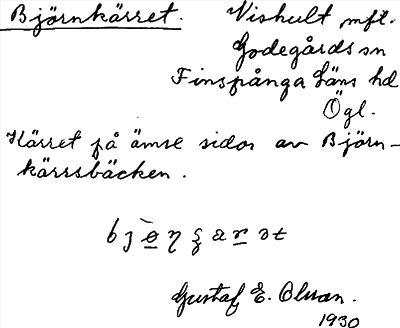 Björnkärret. Viskult mfl.
Godegårds sn
Finspånga Läns hd
Ögl.
Kärret på ömse sidor av Björn-
kärrsbäcken.
Gustaf E. Olsson.
1930